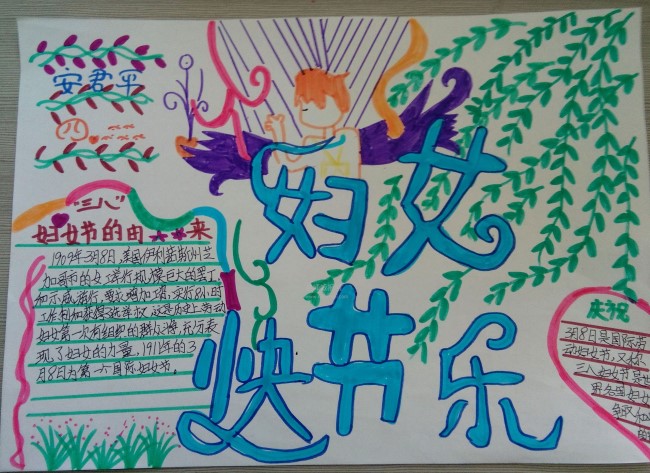 安君平
"三八"
妇女节的由来
1909年3月8日,美国伊利诺斯州芝
加哥市的女工举行规模巨大的罢工
和示威游行,要求增加工资,实行8小时
工作制和获得选举权,这是历史上劳动
妇女第一次有组织的群众斗争,充分表
现了妇女的力量,1911年的3
月8日为第一个国际妇女节。
妇女
节快乐
庆祝
3月8日是国际劳
动妇女节,又称
三八妇女节是世
界各国妇女
争取和